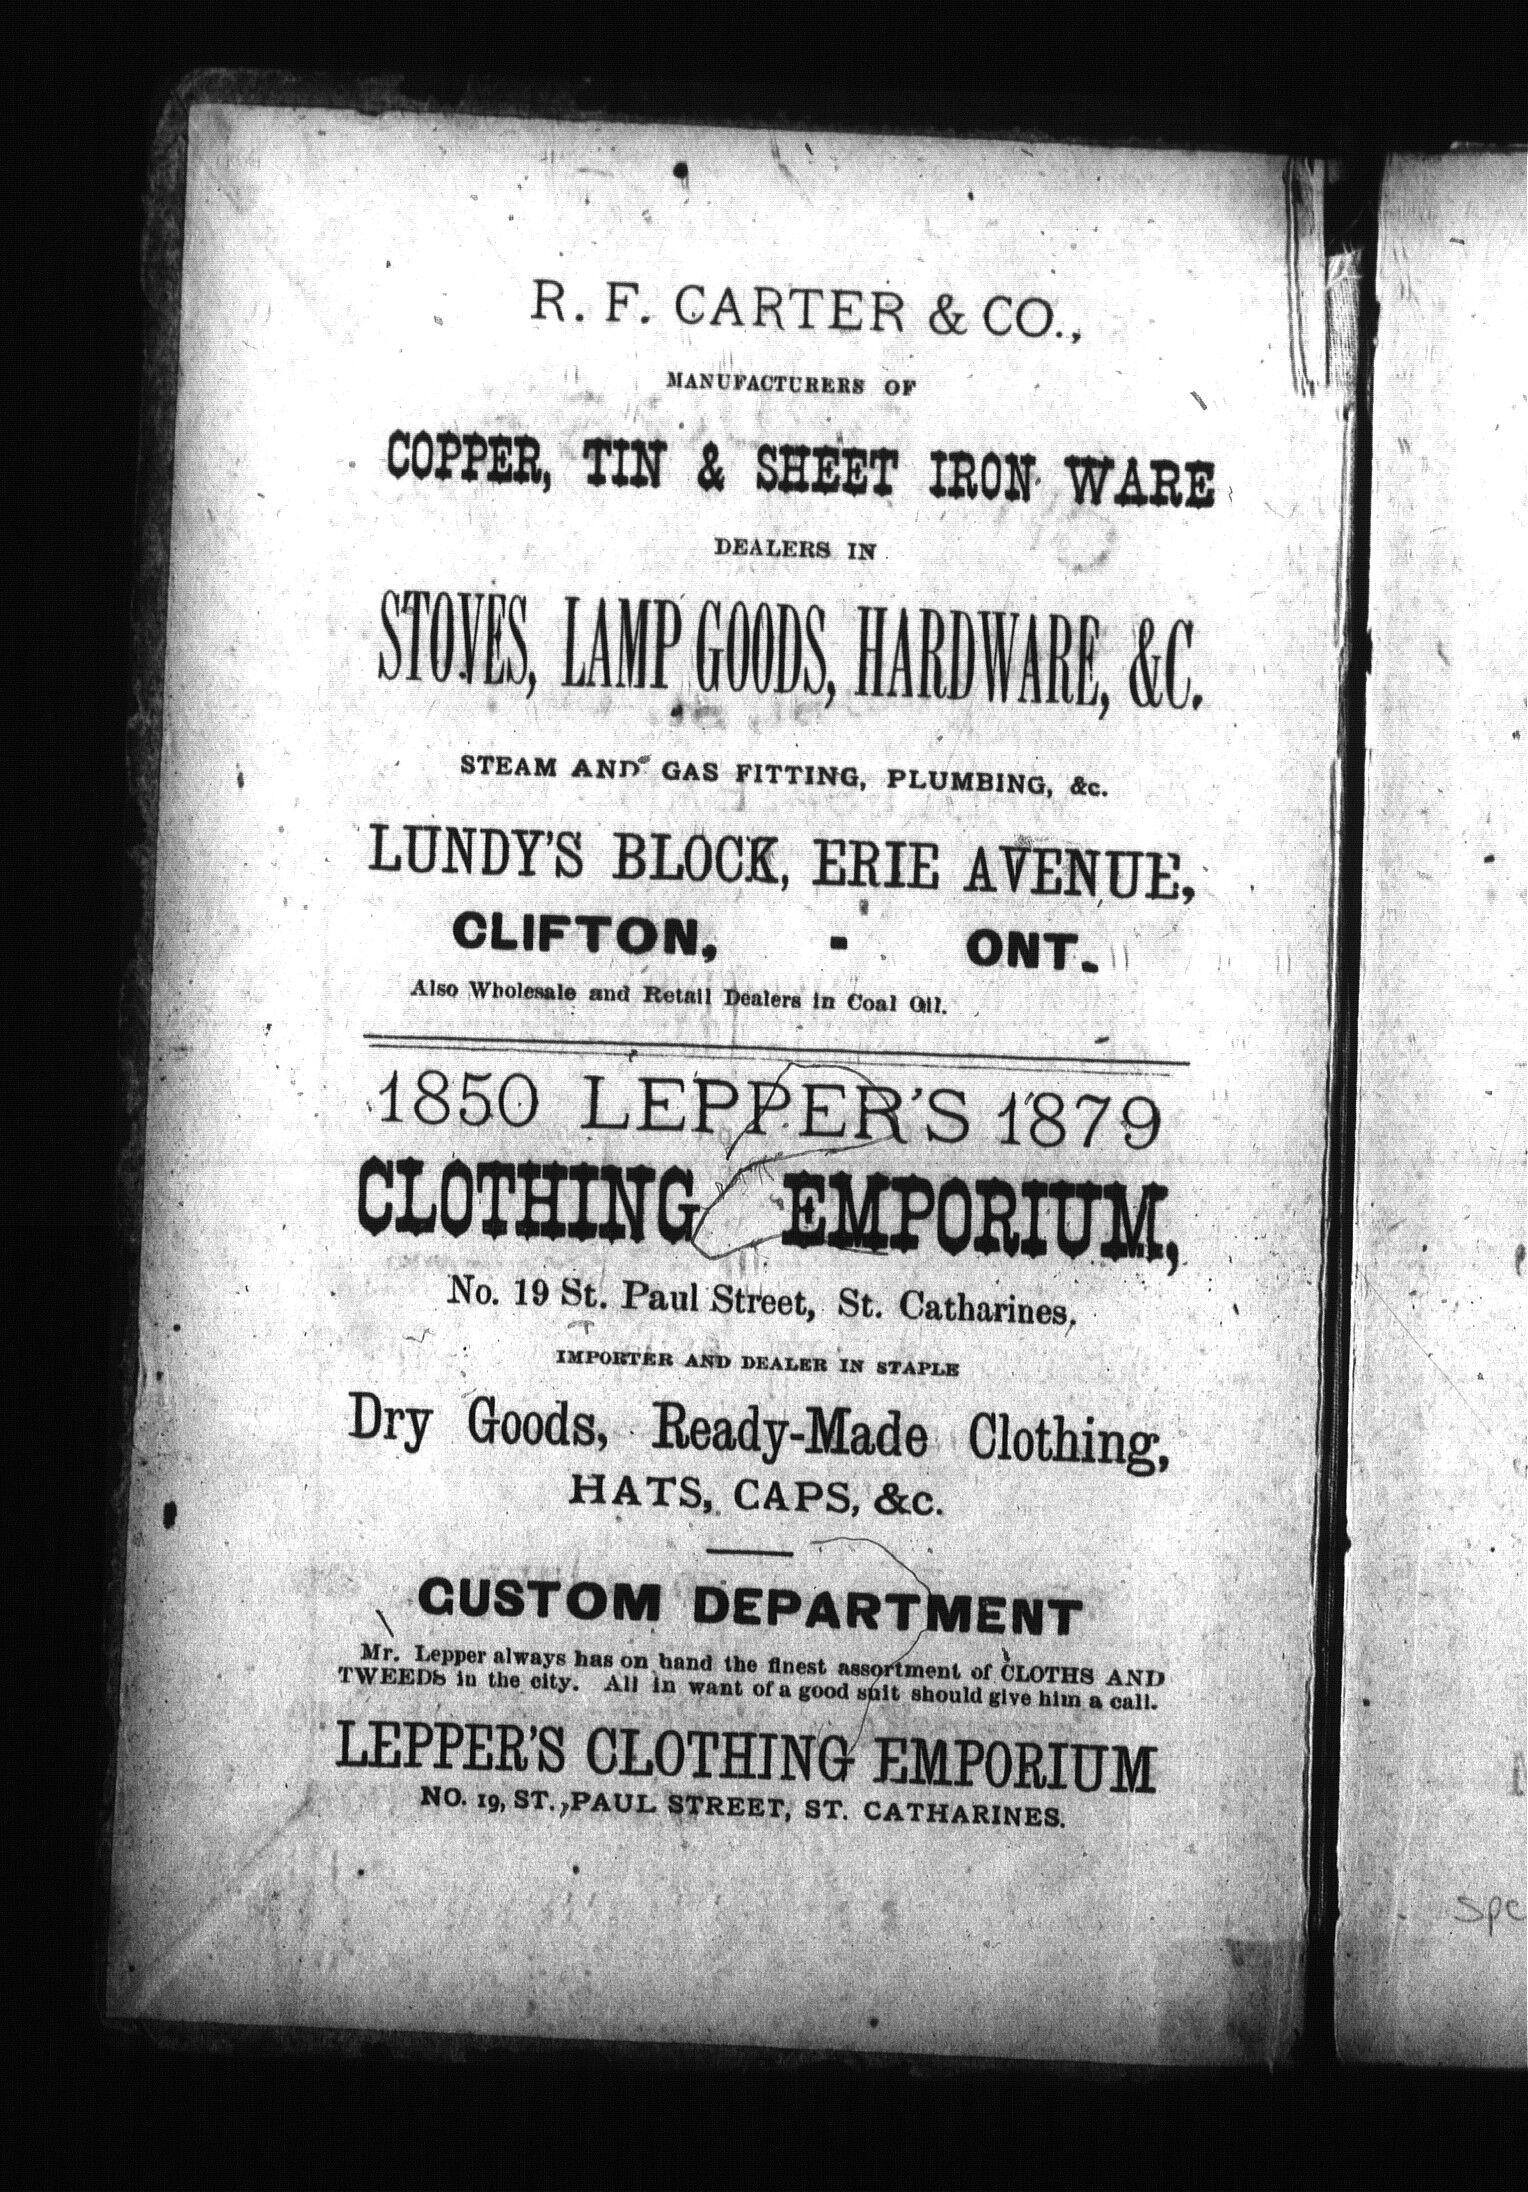 R. F. CARTER & CO.,
MANUFACTURERS OF
COPPER, TIN & SHEET IRON WARE
DEALERS IN
STOVES, LAMP GOODS, HARDWARE, &C.
STEAM AND GAS FITTING, PLUMBING, &c.
LUNDY'S BLOCK, ERIE AVENUE,
CLIFTON, - ONT.
Also Wholesale and Retail Dealers in Coal Oil.
1850 LEPPER'S 1879
CLOTHING EMPORIUM,
No. 19 St. Paul Street, St. Catharines.
IMPORTER AND DEALER IN STAPLE
Dry Goods, Ready-Made Clothing,
HATS, CAPS, &c.
CUSTOM DEPARTMENT
Mr. Lepper always has on hand the finest assortment of CLOTHS AND
TWEEDS in the city. All in want of a good suit should give him a call.
LEPPER'S CLOTHING EMPORIUM
NO. 19, ST. PAUL STREET, ST. CATHARINES.